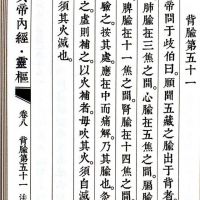 背腧第五十一
帝問于歧伯曰。願聞五藏之腧出于背者。
肺腧在三焦之間。心腧在五焦之間。膈腧
焦之間。腎腧在十四焦之間。
按其處。應在中而痛解。乃其腧也。灸
則補之。以火補者。毋吹其火。須自滅
須其火滅也。
帝內經·靈樞
卷八 背腧第五十一